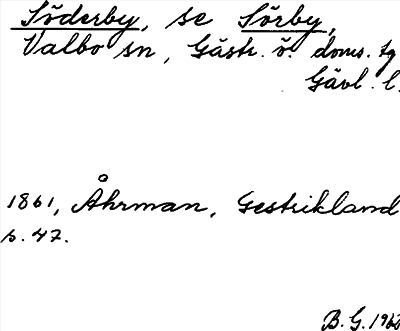 Söderby, se Sörby,
Valbo sn, Gästr. ö. doms. tg
Gävl. l.
1861, Åhrman, Gestrikland
s. 47.
B. G. 1960